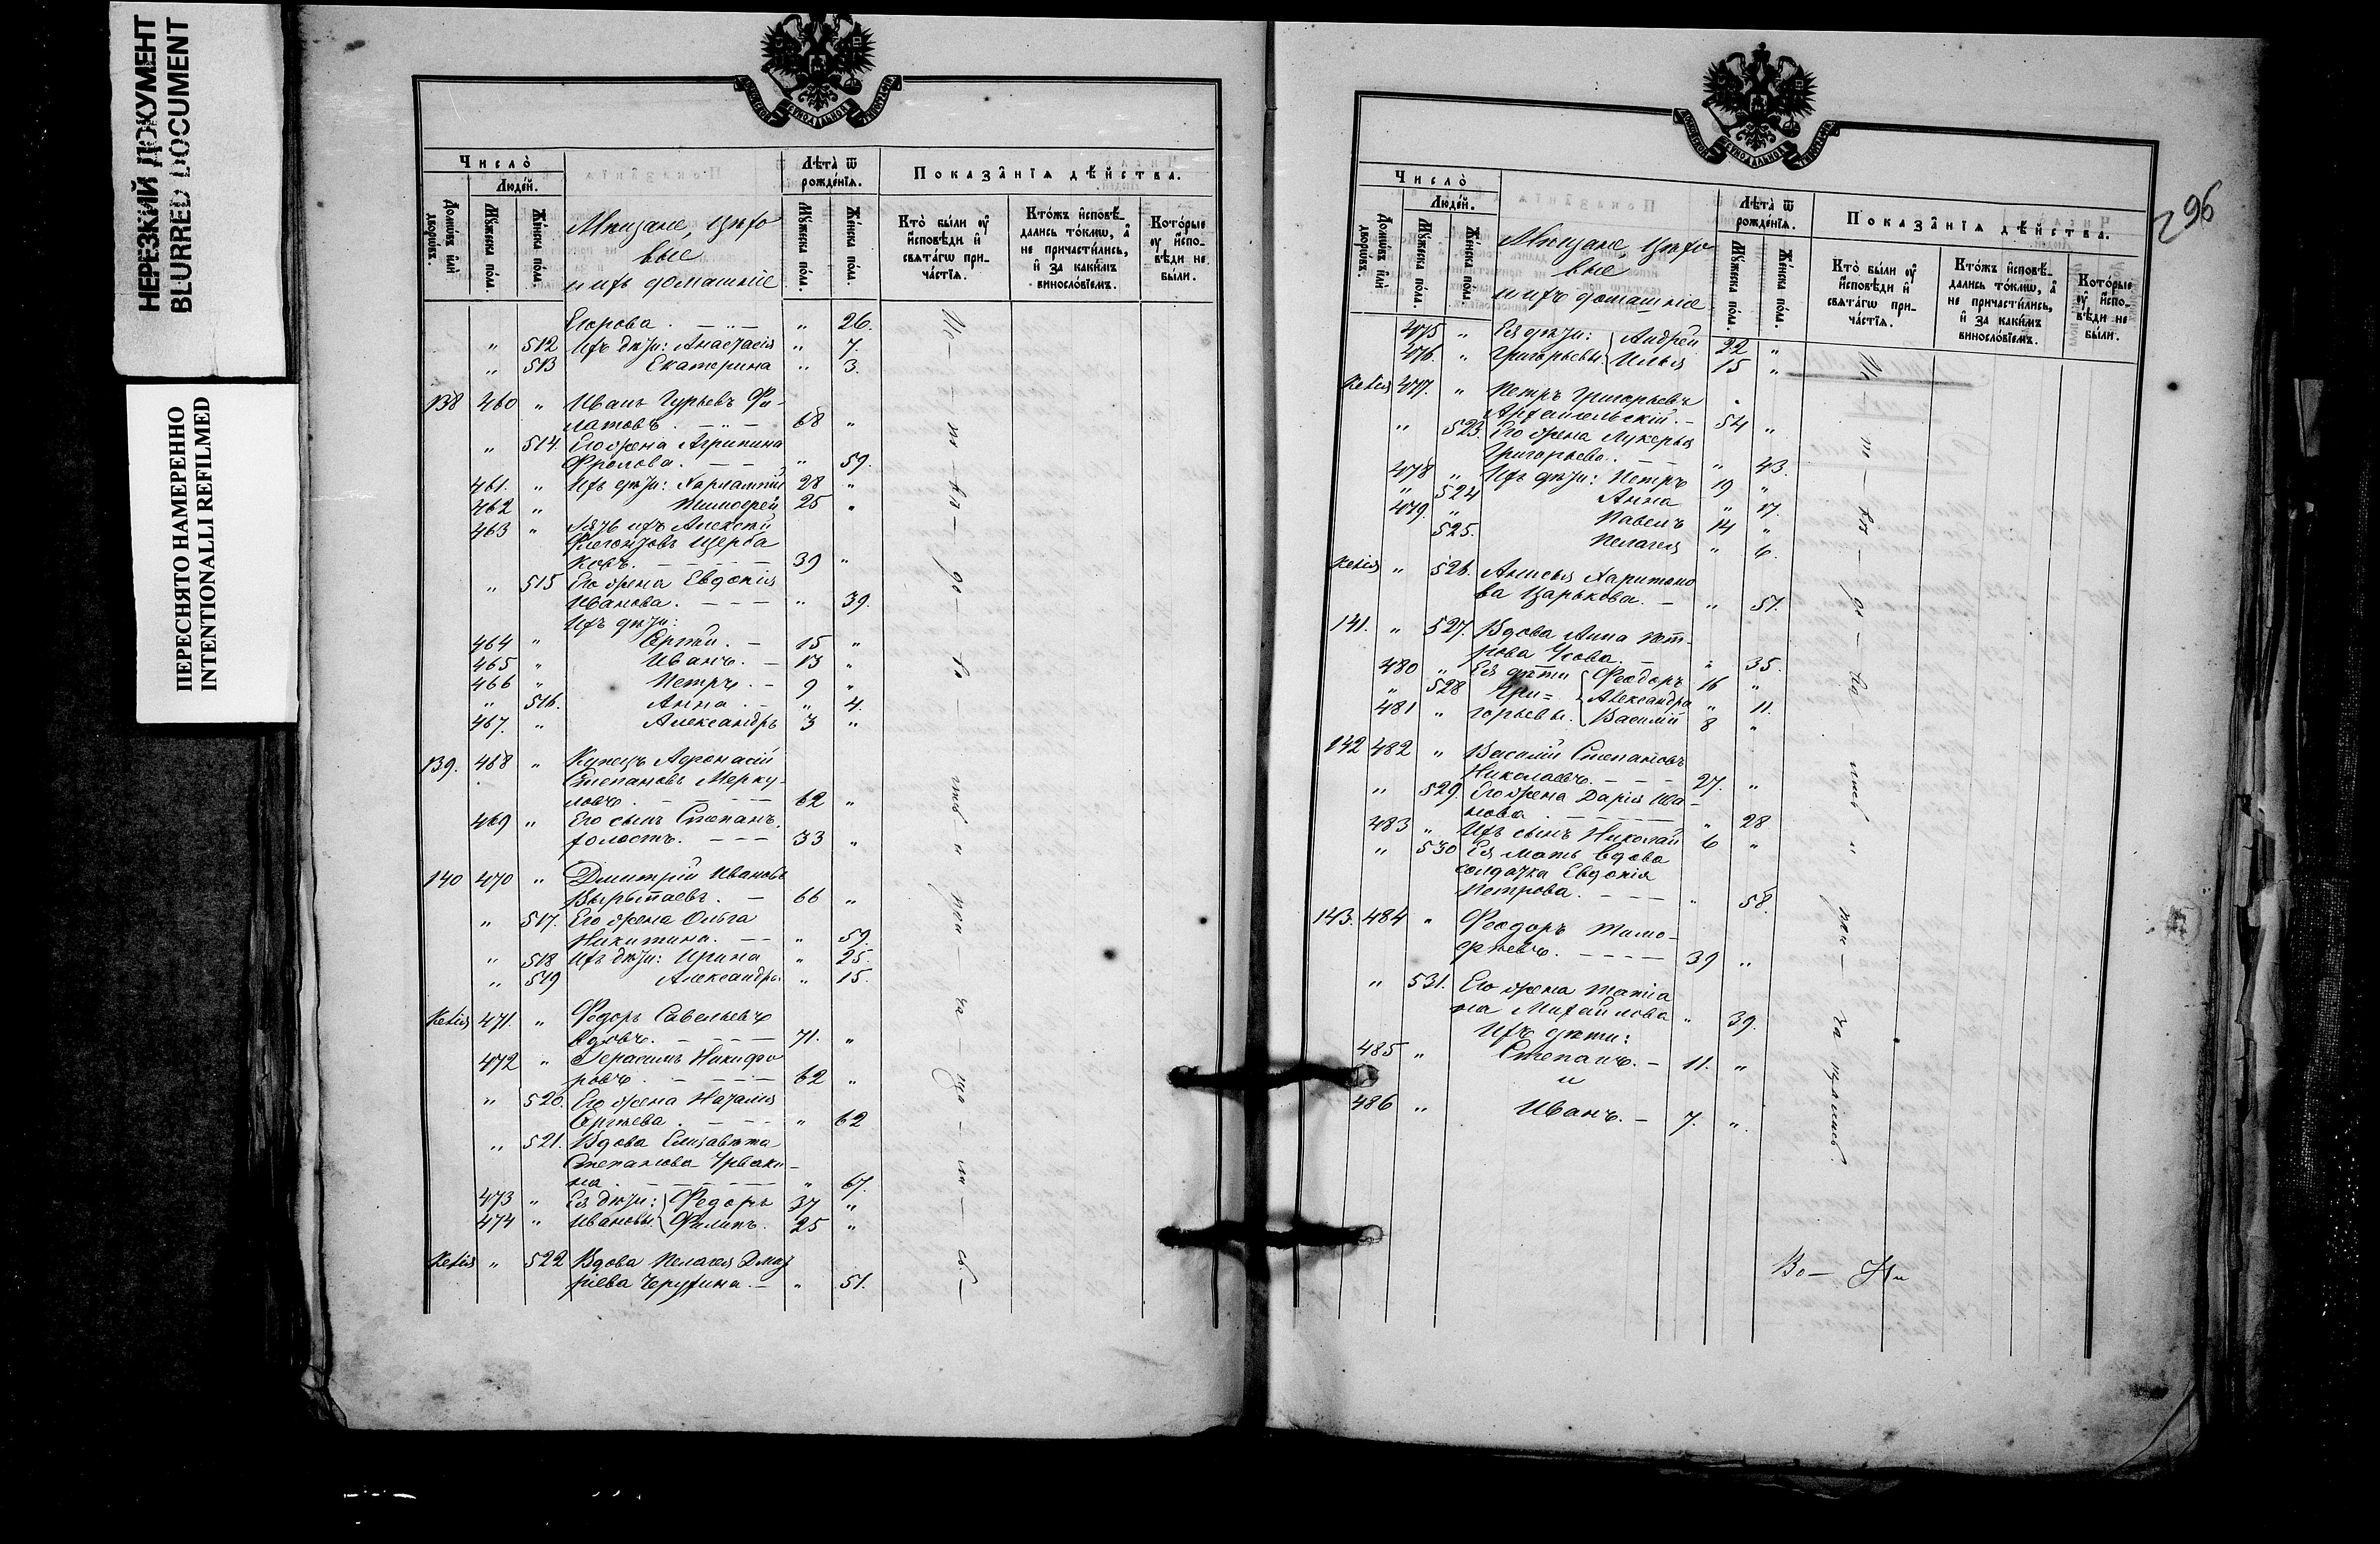 НЕРЕЗКИЙ ДОКУМЕНТ
BLURRED DOCUMENT
ПЕРЕСНЯТО НАМЕРЕННО
INTENTIONALLI REFILMED
Число̀
Люде́й.
Домѡ́въ и҆лѝ дворѡ́въ.
Мꙋ́жеска по́ла.
Же́нска по́ла.
Мещане, цехо
вые
и ихъ домашніе
Лѣта̀ ѿ рожде́нїѧ.
Мꙋ́жеска по́ла.
Же́нска по́ла.
Показа̑нїѧ дѣ́йства.
Кто̀ бы́ли ᲂу҆ и҆сповѣ́ди и҆ свѧта́гѡ прича́стїѧ.
Кто́жъ и҆сповѣ́дались то́кмѡ, а҆ не причасти́лись, и҆ за каки́мъ виносло́вїемъ.
Кото́рые ᲂу҆ и҆сповѣ́ди не бы́ли.
Егорова. - " - " 26.
" 512 Ихъ дѣти: Анастасія " 7.
" 513 Екатерина " 3.
138 460 " Иванъ Гурьевъ Фи-
латовъ. - " - 68 "
" 514. Его жена Агрипина
Фролова. - - " 59.
461. " Ихъ дѣти: Харлампій 28 "
462 " Тимофей 25 "
463 " Зять ихъ Алексѣй
Щерба
ковъ. - - - - 39 "
" 515 Его жена Евдокія
Иванова. - - - " 39.
Ихъ дѣти:
464 " Сергѣй. - 15 "
465 " Иванъ. - 13 "
466 " Петръ. - 9 "
" 516. Анна. - " 4.
467. " Александръ 3 "
139. 468 " Купецъ Афонасій
Степановъ Мерку-
ловъ. - - - - 62 "
469 " Его сынъ Степанъ,
холостъ. - - - 33 "
140 470 " Дмитрій Ивановъ
Вырыпаевъ. - 66 "
" 517. Его жена Ольга
Никитина. - - " 59.
" 518 Ихъ дѣти: Ирина " 25.
" 519 Александра " 15.
471. " Федоръ Савельевъ
вдовъ. - - - - 71. "
472 " Герасимъ Никифо
ровъ. - - - - 62 "
" 520. Его жена Наталія
Сергѣева. - - - " 62
" 521. Вдова Елизавета
Степанова
на. - - - - - " 67.
473 " Ея дѣти: Федоръ 37 "
474 " Ивановы. Филипъ. 25 "
" 522 Вдова Пелагея Дмит
ріева - " 51.
296
Число̀
Люде́й.
Домѡ́въ и҆лѝ дворѡ́въ.
Мꙋ́жеска по́ла.
Же́нска по́ла.
Мещане, цехо
вые
и ихъ домашніе
Лѣта̀ ѿ рожде́нїѧ.
Мꙋ́жеска по́ла.
Же́нска по́ла.
Показа̑нїѧ дѣ́йства.
Кто̀ бы́ли ᲂу҆ и҆сповѣ́ди и҆ свѧта́гѡ прича́стїѧ.
Кто́жъ и҆сповѣ́дались то́кмѡ, а҆ не причасти́лись, и҆ за каки́мъ виносло́вїемъ.
Кото́рые ᲂу҆ и҆сповѣ́ди не бы́ли.
475 " Ея дѣти: Андрей 22 "
476. " Григорьевы. Илья 15 "
477. " Петръ Григорьевъ
Архангельскій. - 54 "
" 523. Его жена Лукерья
Григорьева. - - " 43.
478 " Ихъ дѣти: Петръ 19 "
" 524 Анна " 17.
479. " Павелъ 14 "
525. Пелагея " 6.
" 526. Анисья Харитоно
ва Царькова. - " 57.
141. " 527. Вдова Анна Пет-
рова Усова. - " 35.
480 " Ея дѣти Феодоръ 16 "
" 528 Гри= Александра " 11.
481 " горьевы. Василій 8 "
142 482 " Василій Степановъ
Николаевъ. - - - 27. "
" 529. Его жена Дарія Ива-
нова. - - - - - " 28
483 " Ихъ сынъ Николай 6 "
" 530 Ея мать вдова
солдатка Евдокія
Петрова. - - - " 58.
143. 484 " Феодоръ Тимо-
фѣевъ. - - - - 39 "
" 531. Его жена Татіа
на Михайлова " 39.
Ихъ дѣти:
485 " Степанъ. - 11. "
и
486 " Иванъ. - 7. "